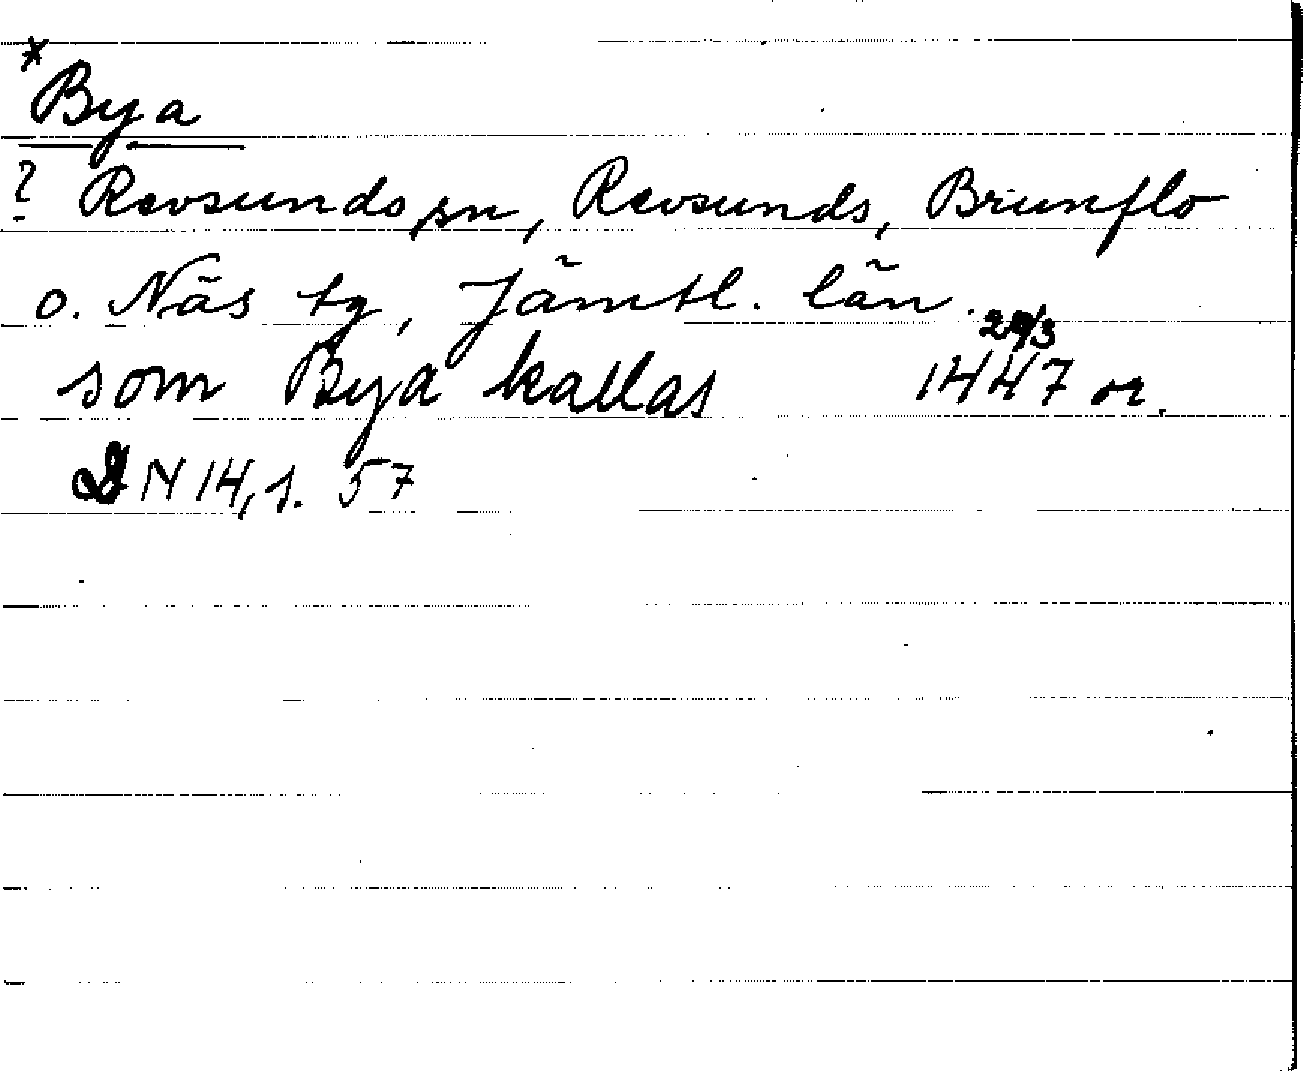 *
Bya
? Revsunds sn, Revsunds, Brunflo
o. Näs tg, Jämtl. län.
som Bya kallas 1447 or.
DN 14, s. 57